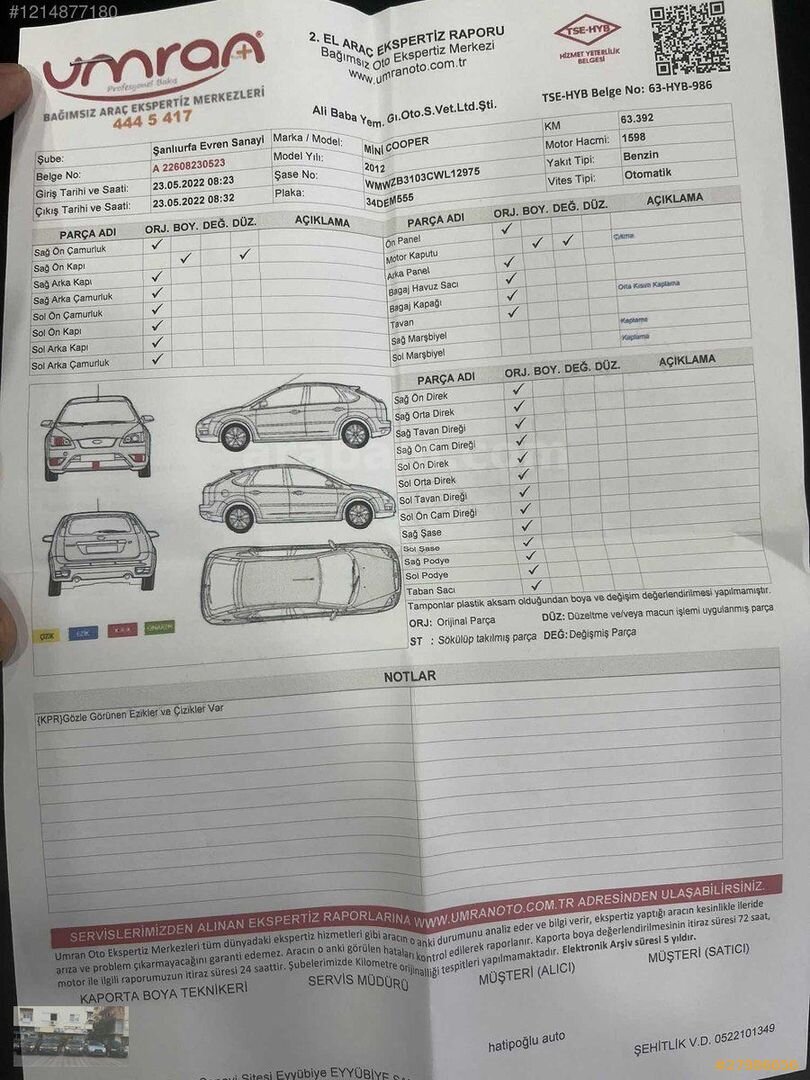 #1214877180
umran+
Profesyonel Bakış
BAĞIMSIZ ARAÇ EKSPERTİZ MERKEZLERİ
444 5 417
2. EL ARAÇ EKSPERTİZ RAPORU
Bağımsız Oto Ekspertiz Merkezi
www.umranoto.com.tr
TSE-HYB
HİZMET YETERLİLİK
BELGESİ
TSE-HYB Belge No: 63-HYB-986
Ali Baba Yem. Gı.Oto.S.Vet.Ltd.Şti.
Şube: Şanlıurfa Evren Sanayi
Belge No: A 22608230523
Giriş Tarihi ve Saati: 23.05.2022 08:23
Çıkış Tarihi ve Saati: 23.05.2022 08:32
Marka / Model: MİNİ COOPER
Model Yılı: 2012
Şase No: WMWZB3103CWL12975
Plaka: 34DEM555
KM 63.392
Motor Hacmi: 1598
Yakıt Tipi: Benzin
Vites Tipi: Otomatik
PARÇA ADI ORJ. BOY. DEĞ. DÜZ. AÇIKLAMA
Sağ Ön Çamurluk ✓
Sağ Ön Kapı ✓ ✓
Sağ Arka Kapı ✓
Sağ Arka Çamurluk ✓
Sol Ön Çamurluk ✓
Sol Ön Kapı ✓
Sol Arka Kapı ✓
Sol Arka Çamurluk ✓
PARÇA ADI ORJ. BOY. DEĞ. DÜZ. AÇIKLAMA
Ön Panel ✓
Motor Kaputu ✓ ✓ Çıkma
Arka Panel ✓
Bagaj Havuz Sacı ✓
Bagaj Kapağı ✓ Orta Kısım Kaplama
Tavan ✓
Sağ Marşbiyel Kaplama
Sol Marşbiyel Kaplama
PARÇA ADI ORJ. BOY. DEĞ. DÜZ. AÇIKLAMA
Sağ Ön Direk ✓
Sağ Orta Direk ✓
Sağ Tavan Direği ✓
Sağ Ön Cam Direği ✓
Sol Ön Direk ✓
Sol Orta Direk ✓
Sol Tavan Direği ✓
Sol Ön Cam Direği ✓
Sağ Şase ✓
Sol Şase ✓
Sağ Podye ✓
Sol Podye ✓
Taban Sacı ✓
ÇİZİK EZİK
Tamponlar plastik aksam olduğundan boya ve değişim değerlendirilmesi yapılmamıştır.
ORJ: Orijinal Parça DÜZ: Düzeltme ve/veya macun işlemi uygulanmış parça
ST : Sökülüp takılmış parça DEĞ: Değişmiş Parça
NOTLAR
(KPR)Gözle Görünen Ezikler ve Çizikler Var
SERVİSLERİMİZDEN ALINAN EKSPERTİZ RAPORLARINA WWW.UMRANOTO.COM.TR ADRESİNDEN ULAŞABİLİRSİNİZ.
Umran Oto Ekspertiz Merkezleri tüm dünyadaki ekspertiz hizmetleri gibi aracın o anki durumunu analiz eder ve bilgi verir, ekspertiz yaptığı aracın kesinlikle ileride
arıza ve problem çıkarmayacağını garanti edemez. Aracın o anki görülen hataları kontrol edilerek raporlanır. Kaporta boya değerlendirilmesinin itiraz süresi 72 saat,
motor ile ilgili raporumuzun itiraz süresi 24 saattir. Şubelerimizde Kilometre orijinalliği tespitleri yapılmamaktadır. Elektronik Arşiv süresi 5 yıldır.
KAPORTA BOYA TEKNİKERİ SERVİS MÜDÜRÜ MÜŞTERİ (ALICI) MÜŞTERİ (SATICI)
hatipoğlu auto
ŞEHİTLİK V.D. 0522101349
Sitesi Eyyübiye EYYÜBİYE